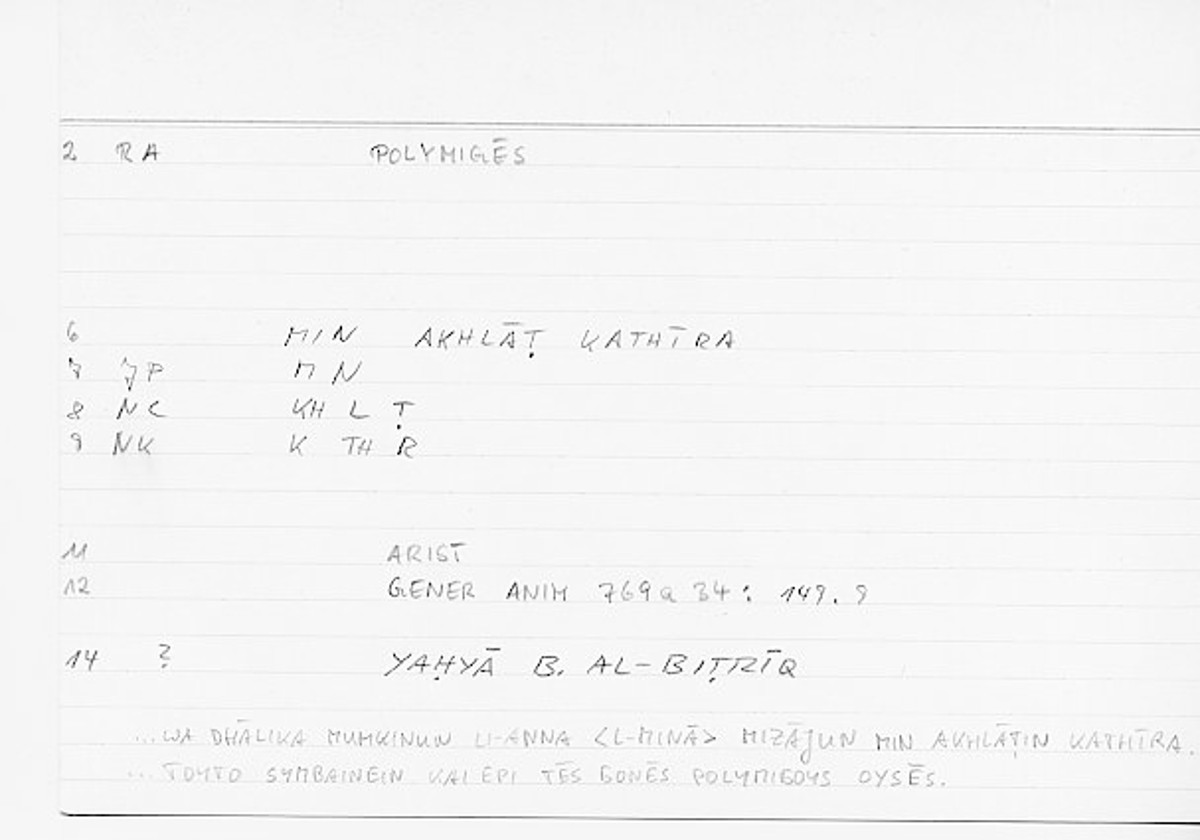 2 RA POLYMIGĒS
6 MIN AKHLĀṬ KATHĪRA
7 JP M N
8 NC KH L Ṭ
9 NK K TH R
11 ARIST
12 GENER ANIM 769a 34: 149.9
14 ? YAḤYĀ B. AL-BIṬRĪQ
...WA DHĀLIKA MUMKINUN LI-ANNA <L-MINĀ> MIZĀJUN MIN AKHLĀṬIN KATHĪRA.
...TOYTO SYMBAINEIN KAI EPI TĒS GONĒS POLYMIGOYS OYSĒS.